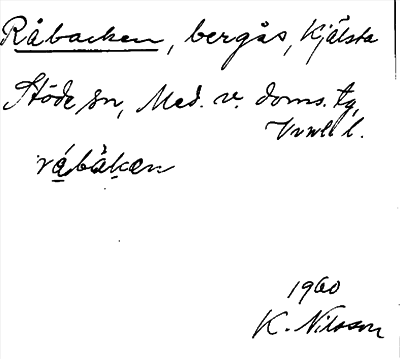 Råbacken, bergås, Kjälsta
Stöde sn, Med. v. doms. tg,
Vrnll l.
råbàkæn
1960
K. Nilsson